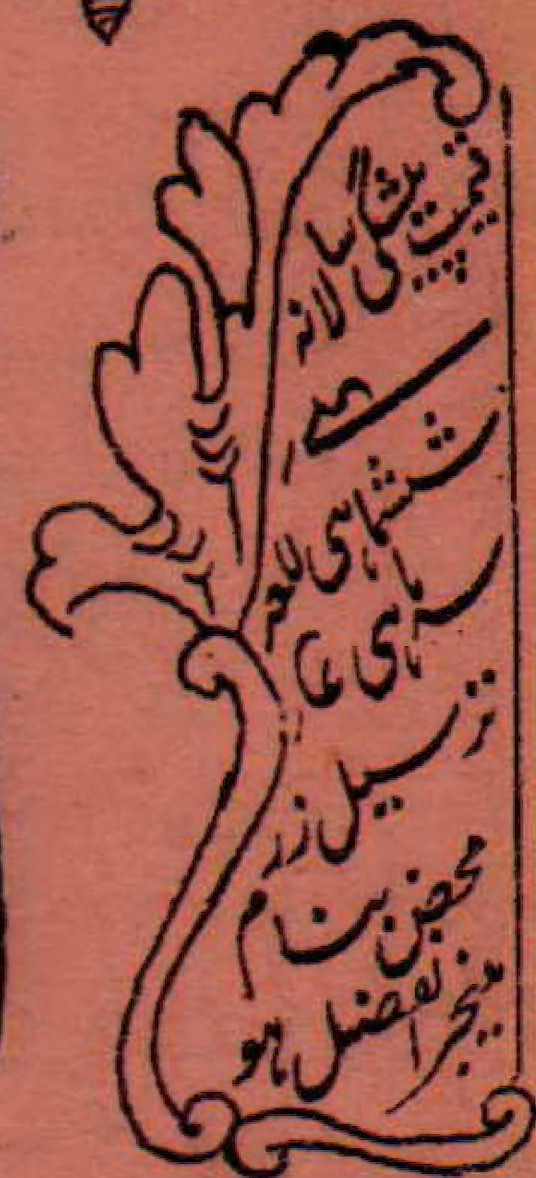 قیمت پیشگی سالانہ
ششماہی للعہ
سہ ماہی عا
ترسیل زر
محض بنام
منیجر الفضل ہو